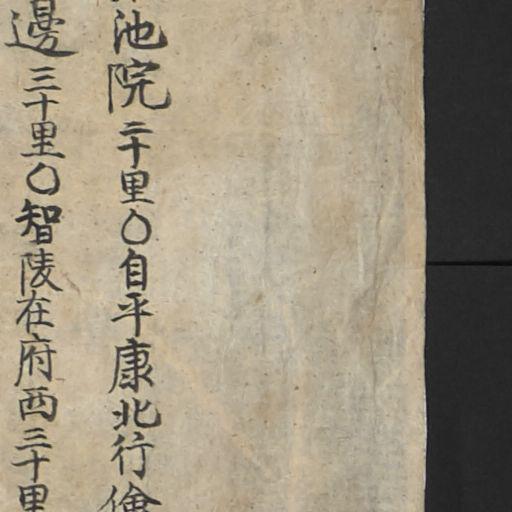 池院二十里〇自平康北行
邊三十里〇智陵在府西三十里